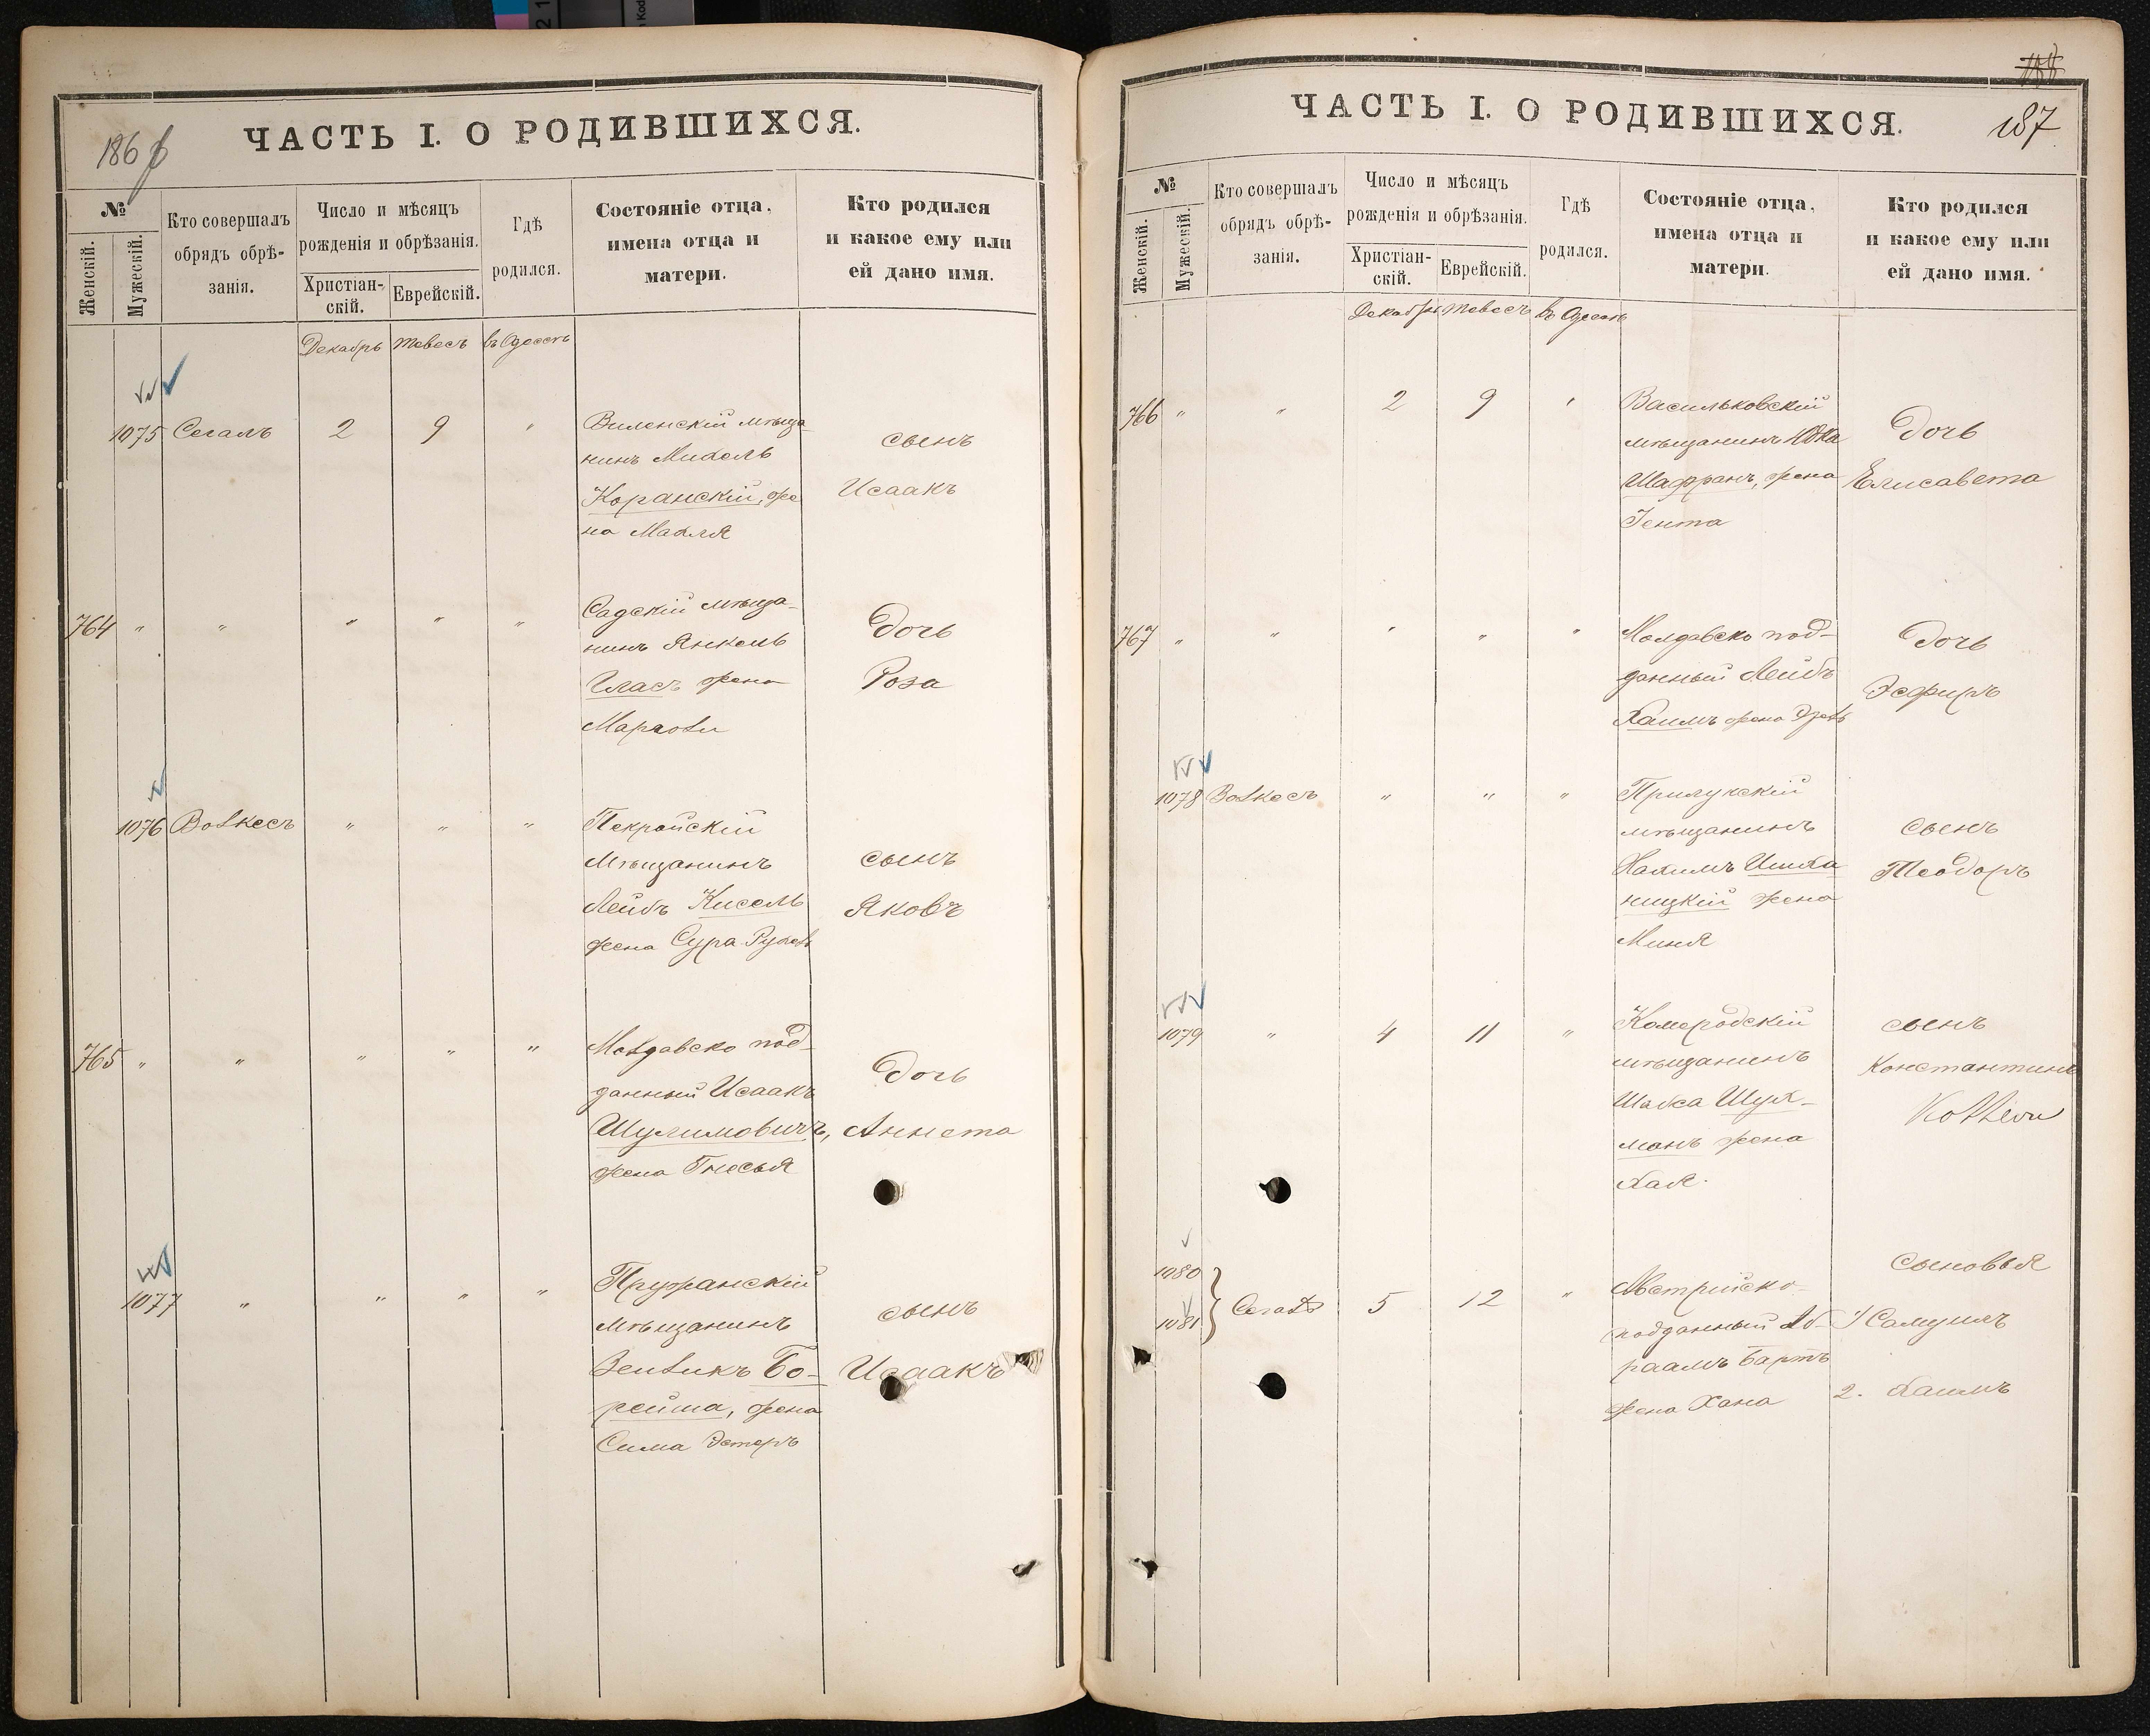 186
ЧАСТЬ I. О РОДИВШИХСЯ.
№
Женскій.
Мужескій.
Кто совершалъ
обрядъ обрѣ-
занія.
Число и мѣсяцъ
рожденія и обрѣзанія.
Христіан-
скій.
Еврейскій.
Гдѣ
родился.
Состояніе отца,
имена отца и
матери.
Кто родился
и какое ему или
ей дано имя.
Декабрь Тевесъ въ Одессѣ
1075 Сегалъ 2 9 "
Виленскій мѣща-
нинъ Михель
Коранскій, же
на Махля
сынъ
Исаакъ
764 " " " " "
Садскій мѣща-
нинъ Янкель
Гласъ жена
Маргови
Дочь
Роза
1076 Волкесъ " " "
Покройскій
мѣщанинъ
Лейбъ Кисель
жена Сура
сынъ
Яковъ
765 " " " " "
Молдавско под-
данный Исаакъ
Шулимовичъ,
жена Гнесья
Дочь
Аннета
1077 " " " "
Пружанскій
мѣщанинъ
Зелвикъ Бо-
рейша, жена
Сима Эстеръ
сынъ
Исаакъ
187
ЧАСТЬ I. О РОДИВШИХСЯ.
№
Женскій.
Мужескій.
Кто совершалъ
обрядъ обрѣ-
занія.
Число и мѣсяцъ
рожденія и обрѣзанія.
Христіан-
скій.
Еврейскій.
Гдѣ
родился.
Состояніе отца,
имена отца и
матери.
Кто родился
и какое ему или
ей дано имя.
Декабрь Тевесъ въ Одессѣ
766 " " 2 9 "
Васильковскій
мѣщанинъ
Шафранъ, жена
Гента
Дочь
Елисавета
767 " " " " "
Молдавско под-
данный Лейбъ
Хаимъ жена
Дочь
Эсфирь
1078 Волкесъ " " "
Прилукскій
мѣщанинъ
Нахимъ Ишха
ницкій жена
Миня
сынъ
Теодоръ
1079 " 4 11 "
Комеродскій
мѣщанинъ
Шабса Шул-
манъ жена
Хая.
сынъ
Константинъ
1080
1081 } Сегалъ 5 12 "
Австрійско-
подданный Аб-
раамъ Бартъ
жена Хана
Сыновья
1) Самуилъ
2. Хаимъ